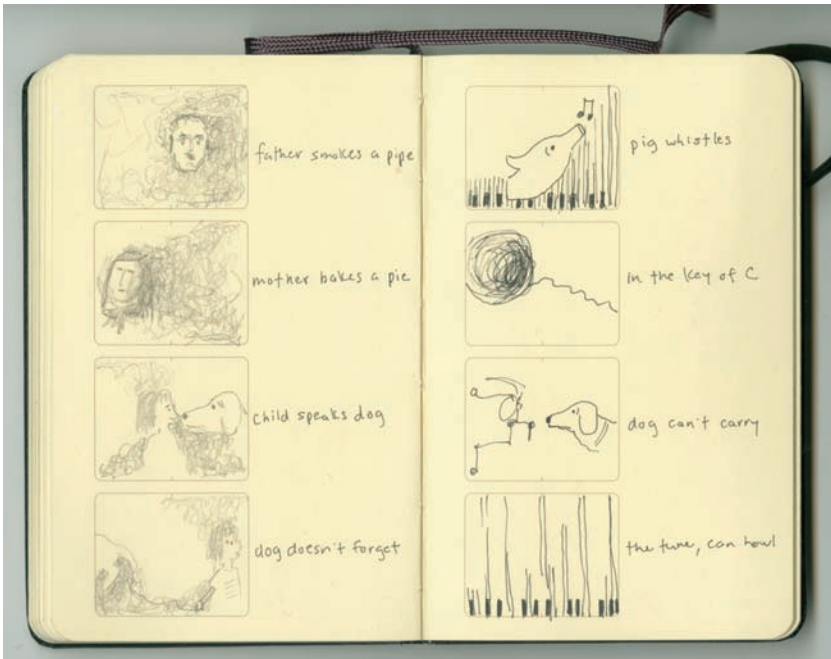 father smokes a pipe
mother bakes a pie
child speaks dog
dog doesn't forget
pig whistles
in the key of C
dog can't carry
the tune, can howl